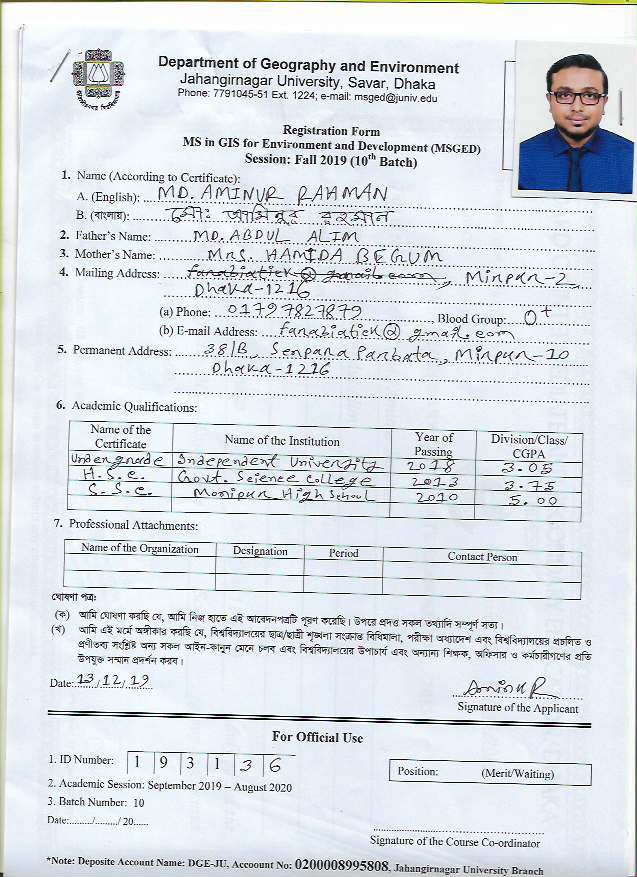 Department of Geography and Environment
Jahangirnagar University, Savar, Dhaka
Phone: 7791045-51 Ext. 1224; e-mail: msged@juniv.edu
Registration Form
MS in GIS for Environment and Development (MSGED)
Session: Fall 2019 (10th Batch)
1. Name (According to Certificate):
A. (English): MD. AMINUR RAHMAN
B. (বাংলায়): মোঃ আমিনুর রহমান
2. Father's Name: MD. ABDUL ALIM
3. Mother's Name: Mrs. HAMIDA BEGUM
4. Mailing Address: fanaziatick@gmail.com, Mirpur-2,
Dhaka-1216
(a) Phone: 01797827879, Blood Group: O+
(b) E-mail Address: fanaziatick@gmail.com
5. Permanent Address: 38/B, Senpara Parbata, Mirpur-10
Dhaka-1216
6. Academic Qualifications:
Name of the Certificate Name of the Institution Year of Passing Division/Class/CGPA
Undergrade Independent University 2018 3.05
H.S.C. Govt. Science College 2013 3.75
S.S.C. Monipur High School 2010 5.00
7. Professional Attachments:
Name of the Organization Designation Period Contact Person
ঘোষণা পত্র:
(ক) আমি ঘোষণা করছি যে, আমি নিজ হাতে এই আবেদনপত্রটি পূরণ করেছি। উপরে প্রদত্ত সকল তথ্যাদি সম্পূর্ণ সত্য।
(খ) আমি এই মর্মে অঙ্গীকার করছি যে, বিশ্ববিদ্যালয়ের ছাত্র/ছাত্রী শৃঙ্খলা সংক্রান্ত বিধিমালা, পরীক্ষা অধ্যাদেশ এবং বিশ্ববিদ্যালয়ের প্রচলিত ও
প্রণীতব্য সংশ্লিষ্ট অন্য সকল আইন-কানুন মেনে চলব এবং বিশ্ববিদ্যালয়ের উপাচার্য এবং অন্যান্য শিক্ষক, অফিসার ও কর্মচারীগণের প্রতি
উপযুক্ত সম্মান প্রদর্শন করব।
Date: 13/12/19
AminuR
Signature of the Applicant
For Official Use
1. ID Number: 1 9 3 1 3 6
Position: (Merit/Waiting)
2. Academic Session: September 2019 – August 2020
3. Batch Number: 10
Date:........./........./ 20......
Signature of the Course Co-ordinator
*Note: Deposite Account Name: DGE-JU, Accoount No: 0200008995808, Jahangirnagar University Branch